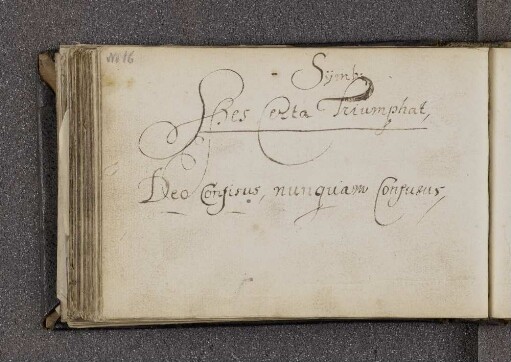 No 16
Symb.
Spes Certa Triumphat,
Deo Confisus, nunquam Confusus,